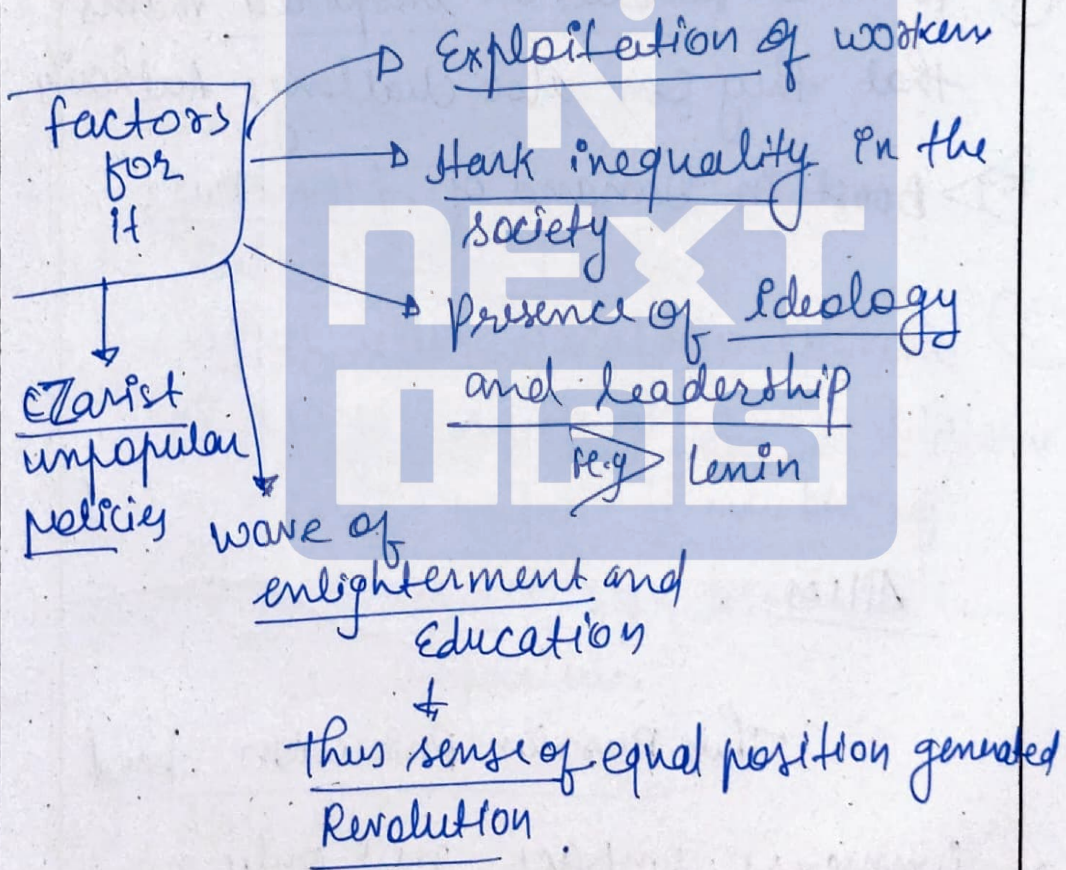 Exploitation of workers
factors
for
it
Stark inequality in the
society
Presence of Ideology
and leadership
e.g Lenin
CZarist
unpopular
policies
wave of
enlighterment and
Education
thus sense of equal position generated
Revolution.
NEXT
IAS